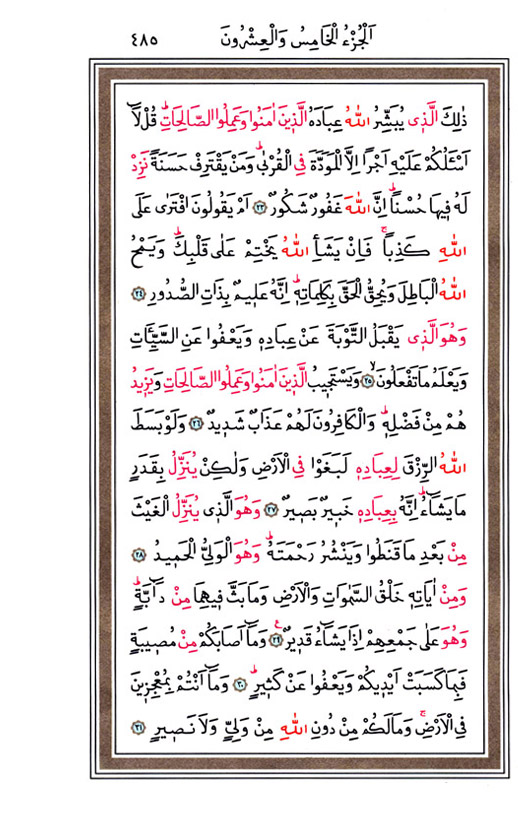 اَلْجُزْءُ الْخَامِسُ وَالْعِشْرُونَ ٤٨٥
ذٰلِكَ الَّذ۪ي يُبَشِّرُ اللّٰهُ عِبَادَهُ الَّذ۪ينَ اٰمَنُوا وَعَمِلُوا الصَّالِحَاتِۜ قُلْ لَٓا
اَسْـَٔلُكُمْ عَلَيْهِ اَجْرًا اِلَّا الْمَوَدَّةَ فِي الْقُرْبٰىۜ وَمَنْ يَقْتَرِفْ حَسَنَةً نَزِدْ
لَهُ ف۪يهَا حُسْنًاۜ اِنَّ اللّٰهَ غَفُورٌ شَكُورٌ ﴿٢٣﴾ اَمْ يَقُولُونَ افْتَرٰى عَلَى
اللّٰهِ كَذِبًاۚ فَاِنْ يَشَأِ اللّٰهُ يَخْتِمْ عَلٰى قَلْبِكَۜ وَيَمْحُ
اللّٰهُ الْبَاطِلَ وَيُحِقُّ الْحَقَّ بِكَلِمَاتِه۪ۜ اِنَّهُ عَل۪يمٌ بِذَاتِ الصُّدُورِ ﴿٢٤﴾
وَهُوَ الَّذ۪ي يَقْبَلُ التَّوْبَةَ عَنْ عِبَادِه۪ وَيَعْفُوا عَنِ السَّيِّـَٔاتِ
وَيَعْلَمُ مَا تَفْعَلُونَۙ ﴿٢٥﴾ وَيَسْتَج۪يبُ الَّذ۪ينَ اٰمَنُوا وَعَمِلُوا الصَّالِحَاتِ وَيَز۪يدُ
هُمْ مِنْ فَضْلِه۪ۜ وَالْكَافِرُونَ لَهُمْ عَذَابٌ شَد۪يدٌ ﴿٢٦﴾ وَلَوْ بَسَطَ
اللّٰهُ الرِّزْقَ لِعِبَادِه۪ لَبَغَوْا فِي الْاَرْضِ وَلٰكِنْ يُنَزِّلُ بِقَدَرٍ
مَا يَشَٓاءُۜ اِنَّهُ بِعِبَادِه۪ خَب۪يرٌ بَص۪يرٌ ﴿٢٧﴾ وَهُوَ الَّذ۪ي يُنَزِّلُ الْغَيْثَ
مِنْ بَعْدِ مَا قَنَطُوا وَيَنْشُرُ رَحْمَتَهُۜ وَهُوَ الْوَلِيُّ الْحَم۪يدُ ﴿٢٨﴾
وَمِنْ اٰيَاتِه۪ خَلْقُ السَّمٰوَاتِ وَالْاَرْضِ وَمَا بَثَّ ف۪يهِمَا مِنْ دَٓابَّةٍۜ
وَهُوَ عَلٰى جَمْعِهِمْ اِذَا يَشَٓاءُ قَد۪يرٌ۟ ﴿٢٩﴾ وَمَٓا اَصَابَكُمْ مِنْ مُص۪يبَةٍ
فَبِمَا كَسَبَتْ اَيْد۪يكُمْ وَيَعْفُوا عَنْ كَث۪يرٍۜ ﴿٣٠﴾ وَمَٓا اَنْتُمْ بِمُعْجِز۪ينَ
فِي الْاَرْضِۚ وَمَا لَكُمْ مِنْ دُونِ اللّٰهِ مِنْ وَلِيٍّ وَلَا نَص۪يرٍ ﴿٣١﴾